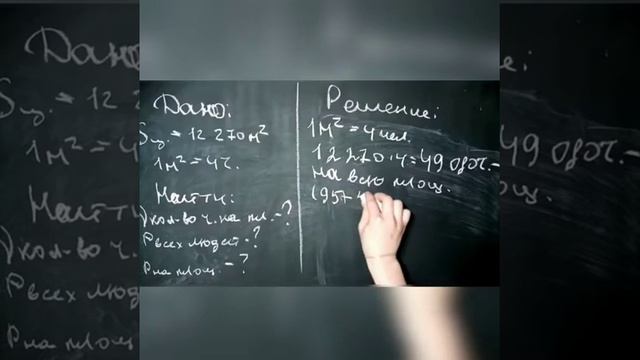 Дано:
Sпл. = 12 270 м²
1м² = 4ч.
Найти:
1) кол-во ч. на пл. - ?
P всех людей - ?
P на площ - ?
Решение:
1м² = 4 чел.
12 270 · 4 = 49 08ч. -
на всю площ.
(95+